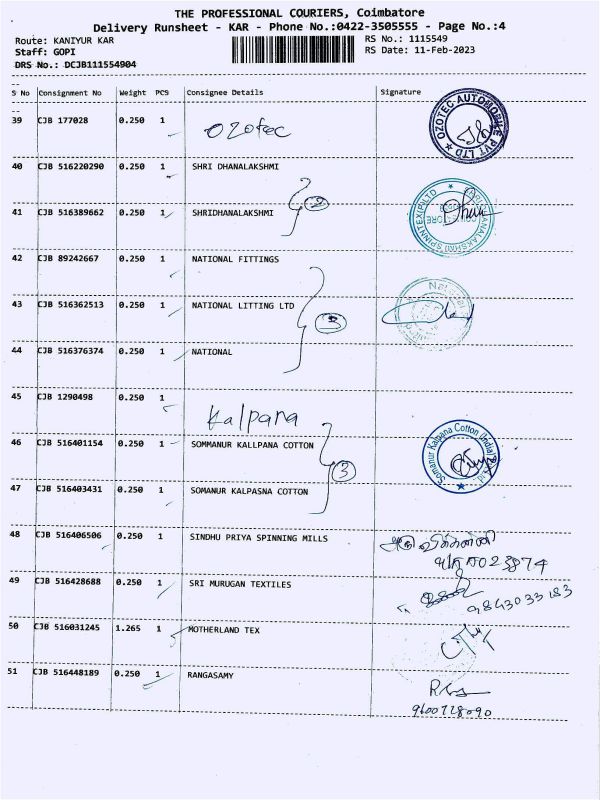 THE PROFESSIONAL COURIERS, Coimbatore
Delivery Runsheet - KAR - Phone No.:0422-3505555 - Page No.:4
Route: KANIYUR KAR RS No.: 1115549
Staff: GOPI RS Date: 11-Feb-2023
DRS No.: DCJB111554904
S No Consignment No Weight PCS Consignee Details Signature
39 CJB 177028 0.250 1 Ozotec
OZOTEC AUTOMOBILE PVT LTD
40 CJB 516220290 0.250 1 SHRI DHANALAKSHMI
41 CJB 516389662 0.250 1 SHRIDHANALAKSHMI 2
42 CJB 89242667 0.250 1 NATIONAL FITTINGS
43 CJB 516362513 0.250 1 NATIONAL LITTING LTD 3
44 CJB 516376374 0.250 1 NATIONAL
45 CJB 1290498 0.250 1 Kalpana
46 CJB 516401154 0.250 1 SOMMANUR KALLPANA COTTON 3
Somanur Kalpana Cotton (India)
47 CJB 516403431 0.250 1 SOMANUR KALPASNA COTTON
48 CJB 516406506 0.250 1 SINDHU PRIYA SPINNING MILLS
49 CJB 516428688 0.250 1 SRI MURUGAN TEXTILES 9843033183
50 CJB 516031245 1.265 1 MOTHERLAND TEX
51 CJB 516448189 0.250 1 RANGASAMY
9600728090